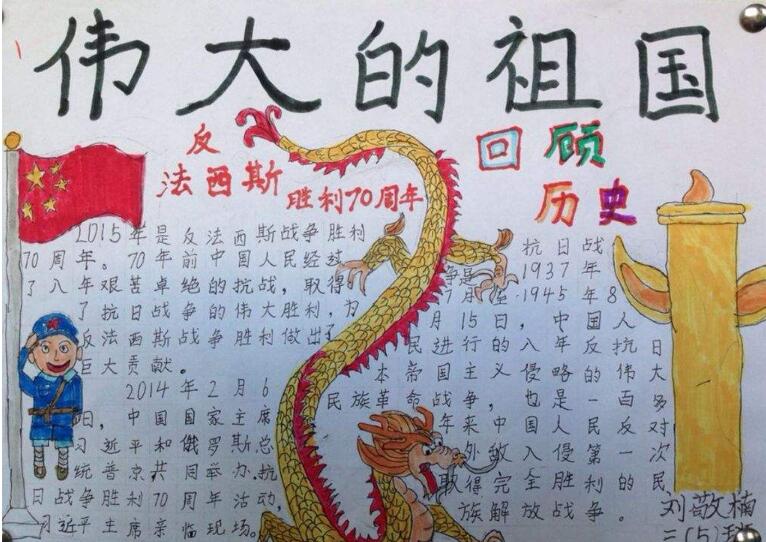 伟大的祖国
反
法西斯
胜利70周年
2015年是反法西斯战争胜利
70周年。70年前中国人民经续
了八年艰苦卓绝的抗战，取得
了抗日战争的伟大胜利，为
反法西斯战争胜利做出了
巨大贡献。
2014年2月6
日，中国国家主席
习近平和俄罗斯总
统普京共同举办抗
日战争胜利70周年活动，
习近平主席亲临现场。
回顾
历史
抗日战
争是1937年
7月至1945年8
月15日，中国人
民进行的八年反抗日
本帝国主义侵略的伟大
民族革命战争，也是一百多
年来中国人民反对
外敌入侵第一次
取得完全胜利的民
族解放战争。
刘敬楠
三(5)班